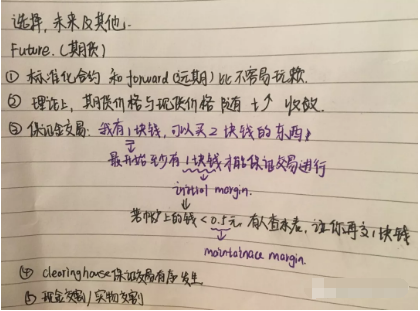 选择,未来及其他.
Future.(期货)
① 标准化合约 和forward(远期)比 不容易玩赖.
② 理论上, 期货价格与现货价格 随着 t↑ 收敛.
③ 保证金交易: 我有1块钱,可以买2块钱的东西,
最开始至少有1块钱才能保证交易进行
initial margin.
若帐户上的钱<0.5元, 有人查水表, 让你再交1块钱
maintainace margin.
④ clearinghouse保证交易有序发生
⑤ 现金交割/实物交割